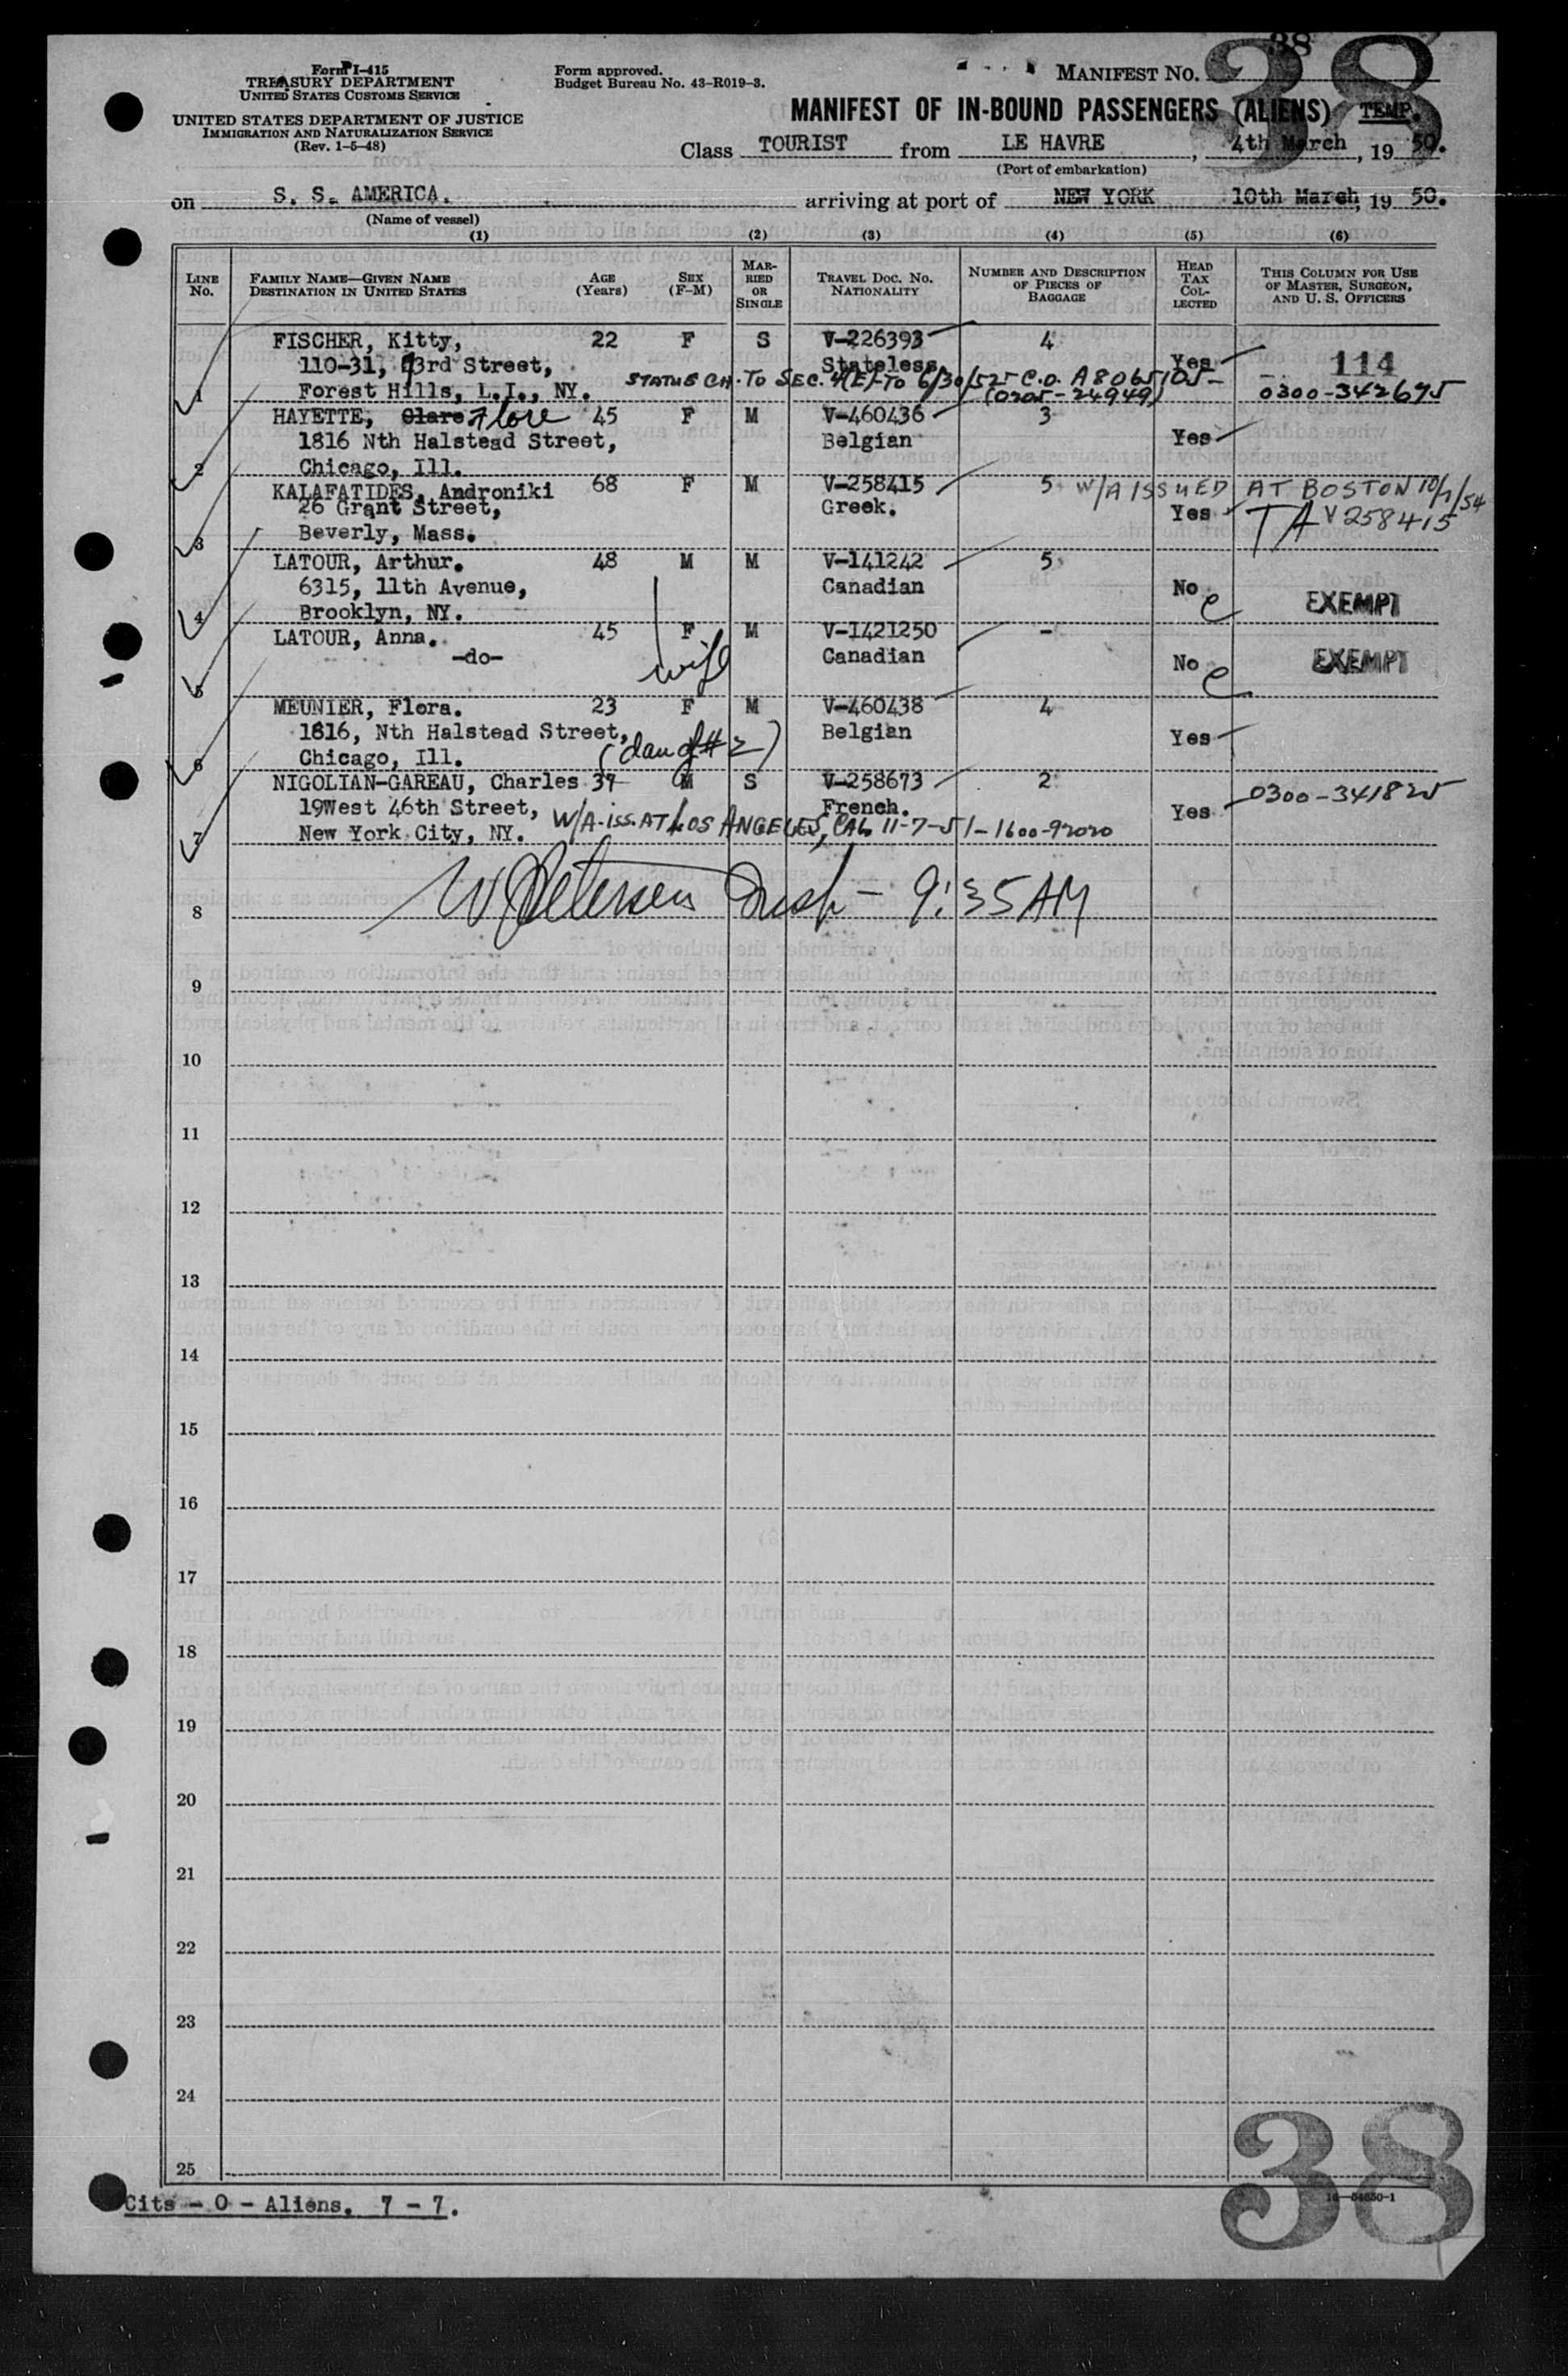 38
Form I-415
TREASURY DEPARTMENT
UNITED STATES CUSTOMS SERVICE
UNITED STATES DEPARTMENT OF JUSTICE
IMMIGRATION AND NATURALIZATION SERVICE
(Rev. 1-5-48)
Form approved.
Budget Bureau No. 43-R019-3.
MANIFEST NO. 38
MANIFEST OF IN-BOUND PASSENGERS (ALIENS) TEMP.
Class TOURIST from LE HAVRE, 4th March, 19 50.
(Port of embarkation)
on S. S. AMERICA. arriving at port of NEW YORK 10th March, 19 50.
(Name of vessel)
(1) (2) (3) (4) (5) (6)
LINE No. FAMILY NAME—GIVEN NAME DESTINATION IN UNITED STATES AGE (Years) SEX (F-M) MARRIED OR SINGLE TRAVEL DOC. NO. NATIONALITY NUMBER AND DESCRIPTION OF PIECES OF BAGGAGE HEAD TAX COLLECTED THIS COLUMN FOR USE OF MASTER, SURGEON, AND U. S. OFFICERS
FISCHER, Kitty, 22 F S V-226393 4
110-31, 3rd Street, Stateless. Yes 114
STATUS CH. TO SEC. 4(E)-TO 6/30/52 C.O. A8065105-
1 Forest Hills, L.I., NY. (0205-24949) 0300-342675
HAYETTE, Clare Flore 45 F M V-460436 3
1816 Nth Halstead Street, Belgian Yes
2 Chicago, Ill.
KALAFATIDES, Androniki 68 F M V-258415 5 W/A ISSUED AT BOSTON 10/1/54
26 Grant Street, Greek. Yes TA V258415
3 Beverly, Mass.
LATOUR, Arthur. 48 M M V-141242 5
6315, 11th Avenue, Canadian No EXEMPT
4 Brooklyn, NY.
LATOUR, Anna. 45 F M V-1421250 -
-do- wife Canadian No EXEMPT
5
MEUNIER, Flora. 23 F M V-460438 4
1816, Nth Halstead Street, Belgian Yes
6 Chicago, Ill. (dau of #2)
NIGOLIAN-GAREAU, Charles 37 M S V-258673 2 0300-341825
19West 46th Street, French. Yes
7 New York City, NY. W/A-iss. AT LOS ANGELES, CAL. 11-7-51-1600-92020
W Petersen Insp - 9:35 AM
8
9
10
11
12
13
14
15
16
17
18
19
20
21
22
23
24
25
Cits - 0 - Aliens. 7 - 7.
38